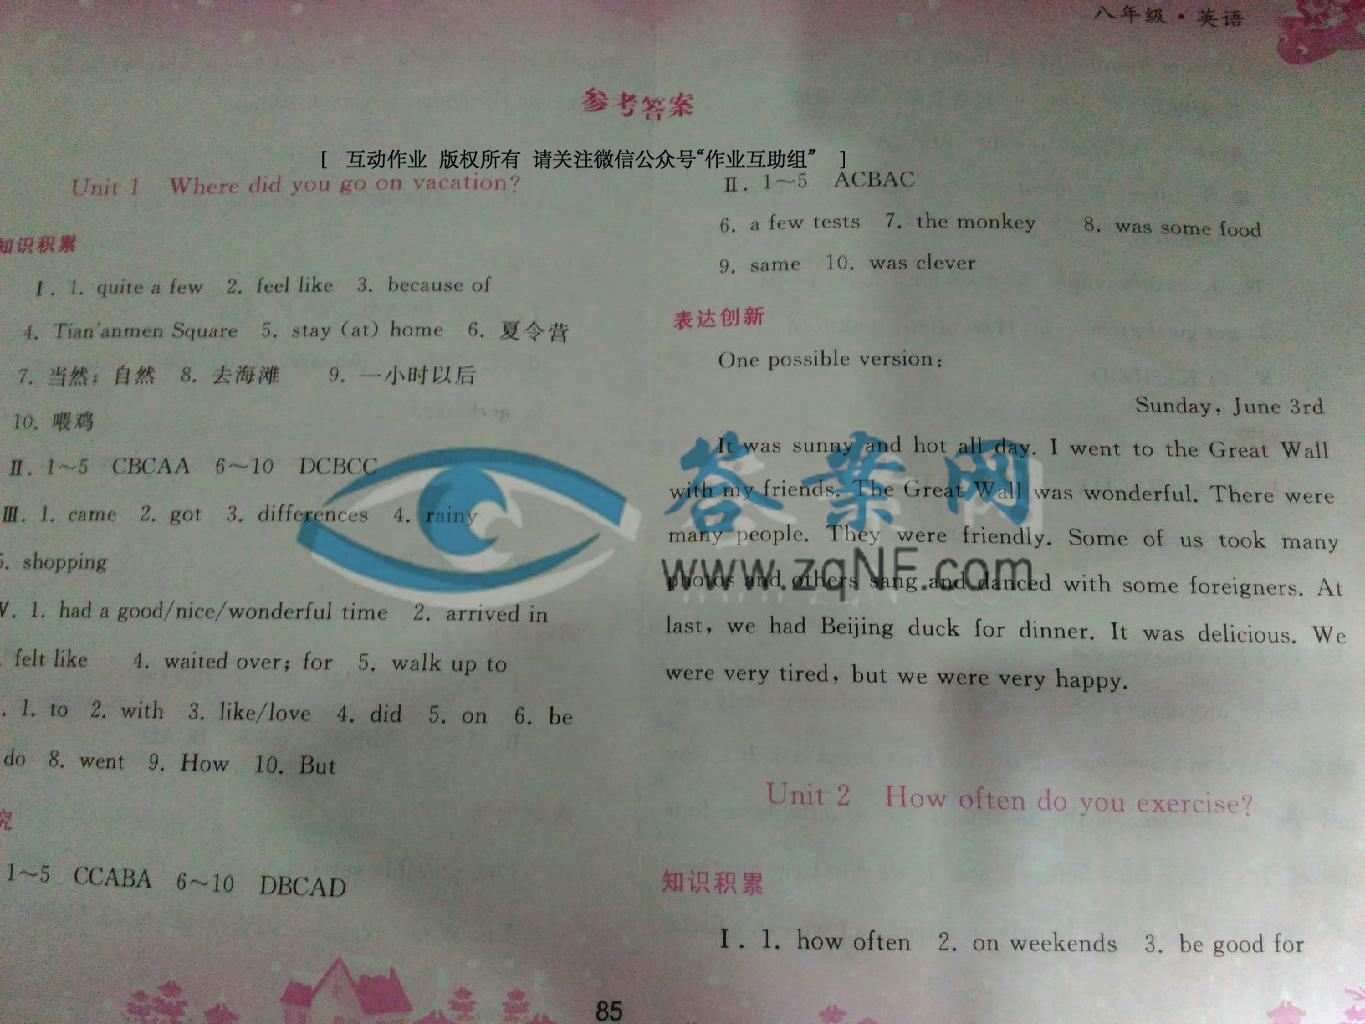 八年级·英语
参考答案
[ 互动作业 版权所有 请关注微信公众号“作业互助组” ]
Unit 1 Where did you go on vacation?
知识积累
Ⅰ. 1. quite a few 2. feel like 3. because of
4. Tian'anmen Square 5. stay (at) home 6. 夏令营
7. 当然；自然 8. 去海滩 9. 一小时以后
10. 喂鸡
Ⅱ. 1～5 CBCAA 6～10 DCBCC
Ⅲ. 1. came 2. got 3. differences 4. rainy
. shopping
V. 1. had a good/nice/wonderful time 2. arrived in
. felt like 4. waited over; for 5. walk up to
. 1. to 2. with 3. like/love 4. did 5. on 6. be
do 8. went 9. How 10. But
究
1～5 CCABA 6～10 DBCAD
Ⅱ. 1～5 ACBAC
6. a few tests 7. the monkey 8. was some food
9. same 10. was clever
表达创新
One possible version:
Sunday, June 3rd
It was sunny and hot all day. I went to the Great Wall
with my friends. The Great Wall was wonderful. There were
many people. They were friendly. Some of us took many
photos and others sang and danced with some foreigners. At
last, we had Beijing duck for dinner. It was delicious. We
were very tired, but we were very happy.
Unit 2 How often do you exercise?
知识积累
Ⅰ. 1. how often 2. on weekends 3. be good for
85
答案网
www.zqNF.com